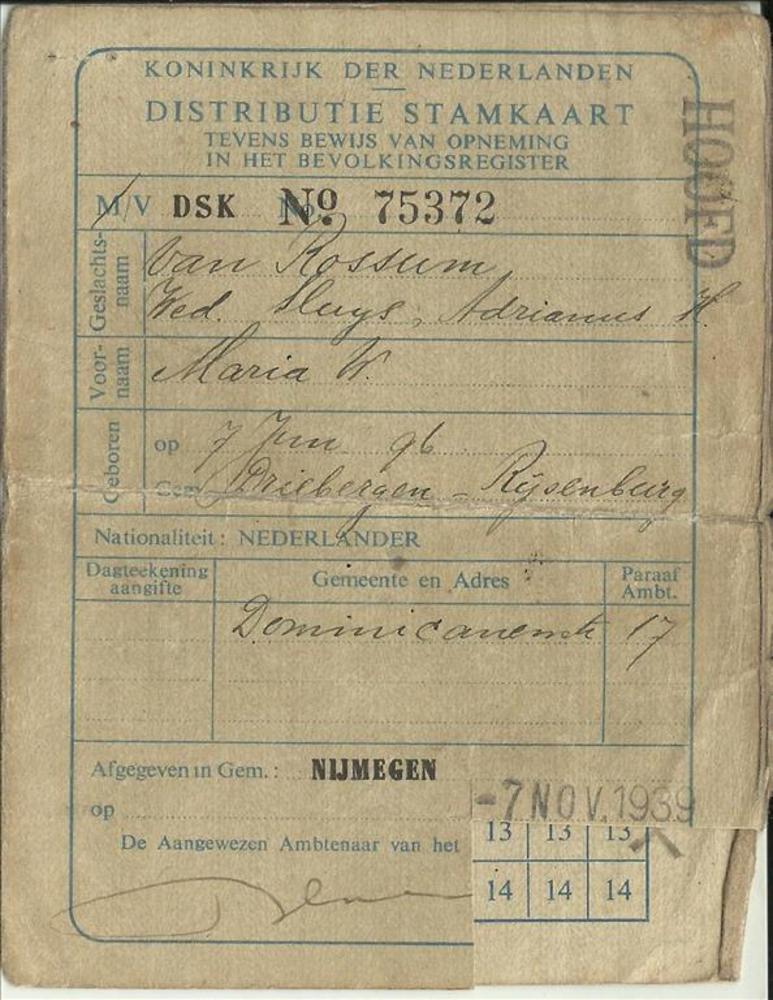 KONINKRIJK DER NEDERLANDEN
DISTRIBUTIE STAMKAART
TEVENS BEWIJS VAN OPNEMING
IN HET BEVOLKINGSREGISTER
HOOFD
M/V DSK Nº 75372
Geslachts-
naam
van Rossum,
Wed. Sluys, Adrianus H.
Voor-
naam
Maria W.
Geboren
op 7 Jun 96
Gem. Driebergen - Rijsenburg
Nationaliteit: NEDERLANDER
Dagteekening
aangifte
Gemeente en Adres
Paraaf
Ambt.
Dominicanenstr 17
Afgegeven in Gem.: NIJMEGEN
op -7 NOV. 1939
De Aangewezen Ambtenaar van het
13 13 13
14 14 14